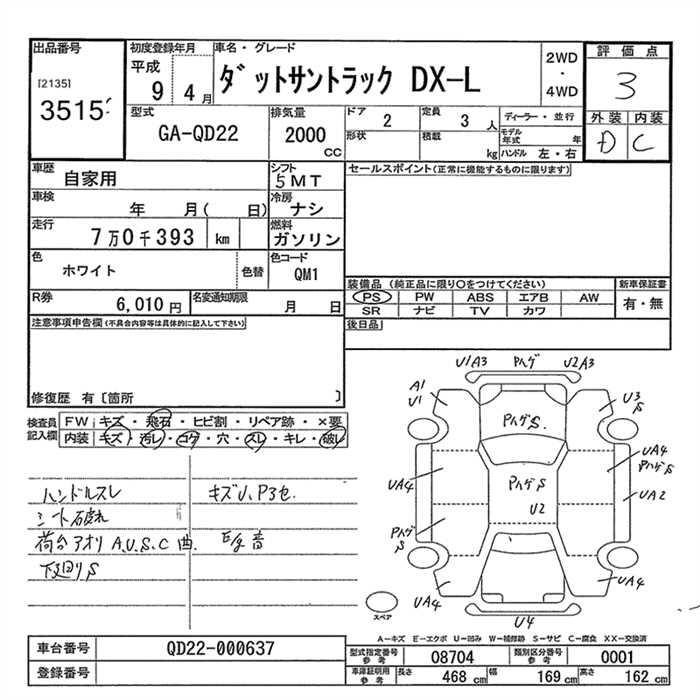 出品番号
[2135]
3515
初度登録年月
平成
9 4月
車名・グレード
ダットサントラック DX-L
2WD
・
4WD
評価点
3
外装 内装
D C
型式
GA-QD22
排気量
2000
CC
ドア
2
定員
3 人
形状
積載
kg
ディーラー・並行
モデル年式 年
ハンドル 左・右
車歴
自家用
シフト
5MT
セールスポイント(正常に機能するものに限ります)
車検
年 月( 日)
冷房
ナシ
走行
7万0千393 km
燃料
ガソリン
色
ホワイト
色替
色コード
QM1
装備品 (純正品に限り○をつけてください)
PS PW ABS エアB AW
SR ナビ TV カワ
新車保証書
有・無
R券
6,010円
名変通知期限
月 日
後日品
注意事項申告欄(不具合内容等は具体的に記入して下さい)
修復歴 有〔箇所 〕
検査員記入欄
FW キズ・飛石・ヒビ割・リペア跡・×要
内装 キズ・汚レ・コゲ・穴・スレ・キレ・破レ
ハンドルスレ
キズU、P3セ.
シート破れ
荷台アオリ A.U.S.C 曲.
E/g 音
下廻りS
U1A3 Pハゲ U2A3
A1
U1
U3
S
PハゲS.
UA4
UA4
PハゲS
PハゲS
UA2
U2
Pハゲ
S
UA4
UA4
U4
スペア
A―キズ E―エクボ U―凹み W―補修跡 S―サビ C―腐食 XX―交換済
車台番号
QD22-000637
登録番号
型式指定番号
参考
08704
類別区分番号
参考
0001
車庫証明用
参考
長さ
468 cm
幅
169 cm
高さ
162 cm